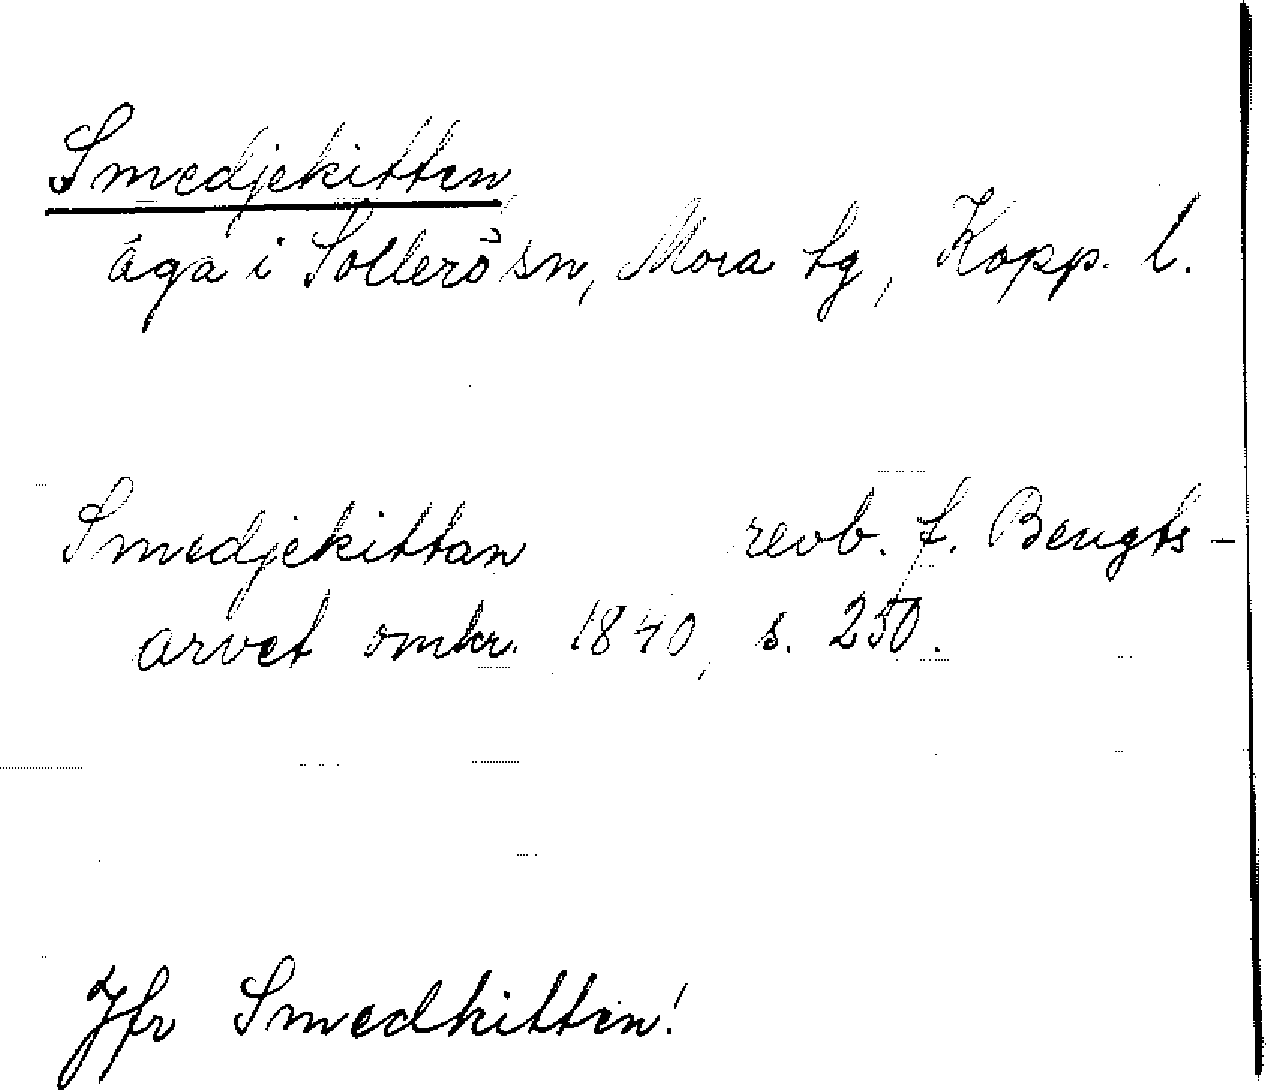 Smedjekitten
äga i Sollerö sn, Mora tg, Kopp. l.
Smedjekittan revb. f. Bengts-
arvet omkr. 1840, s. 250.
Jfr Smedkitten!